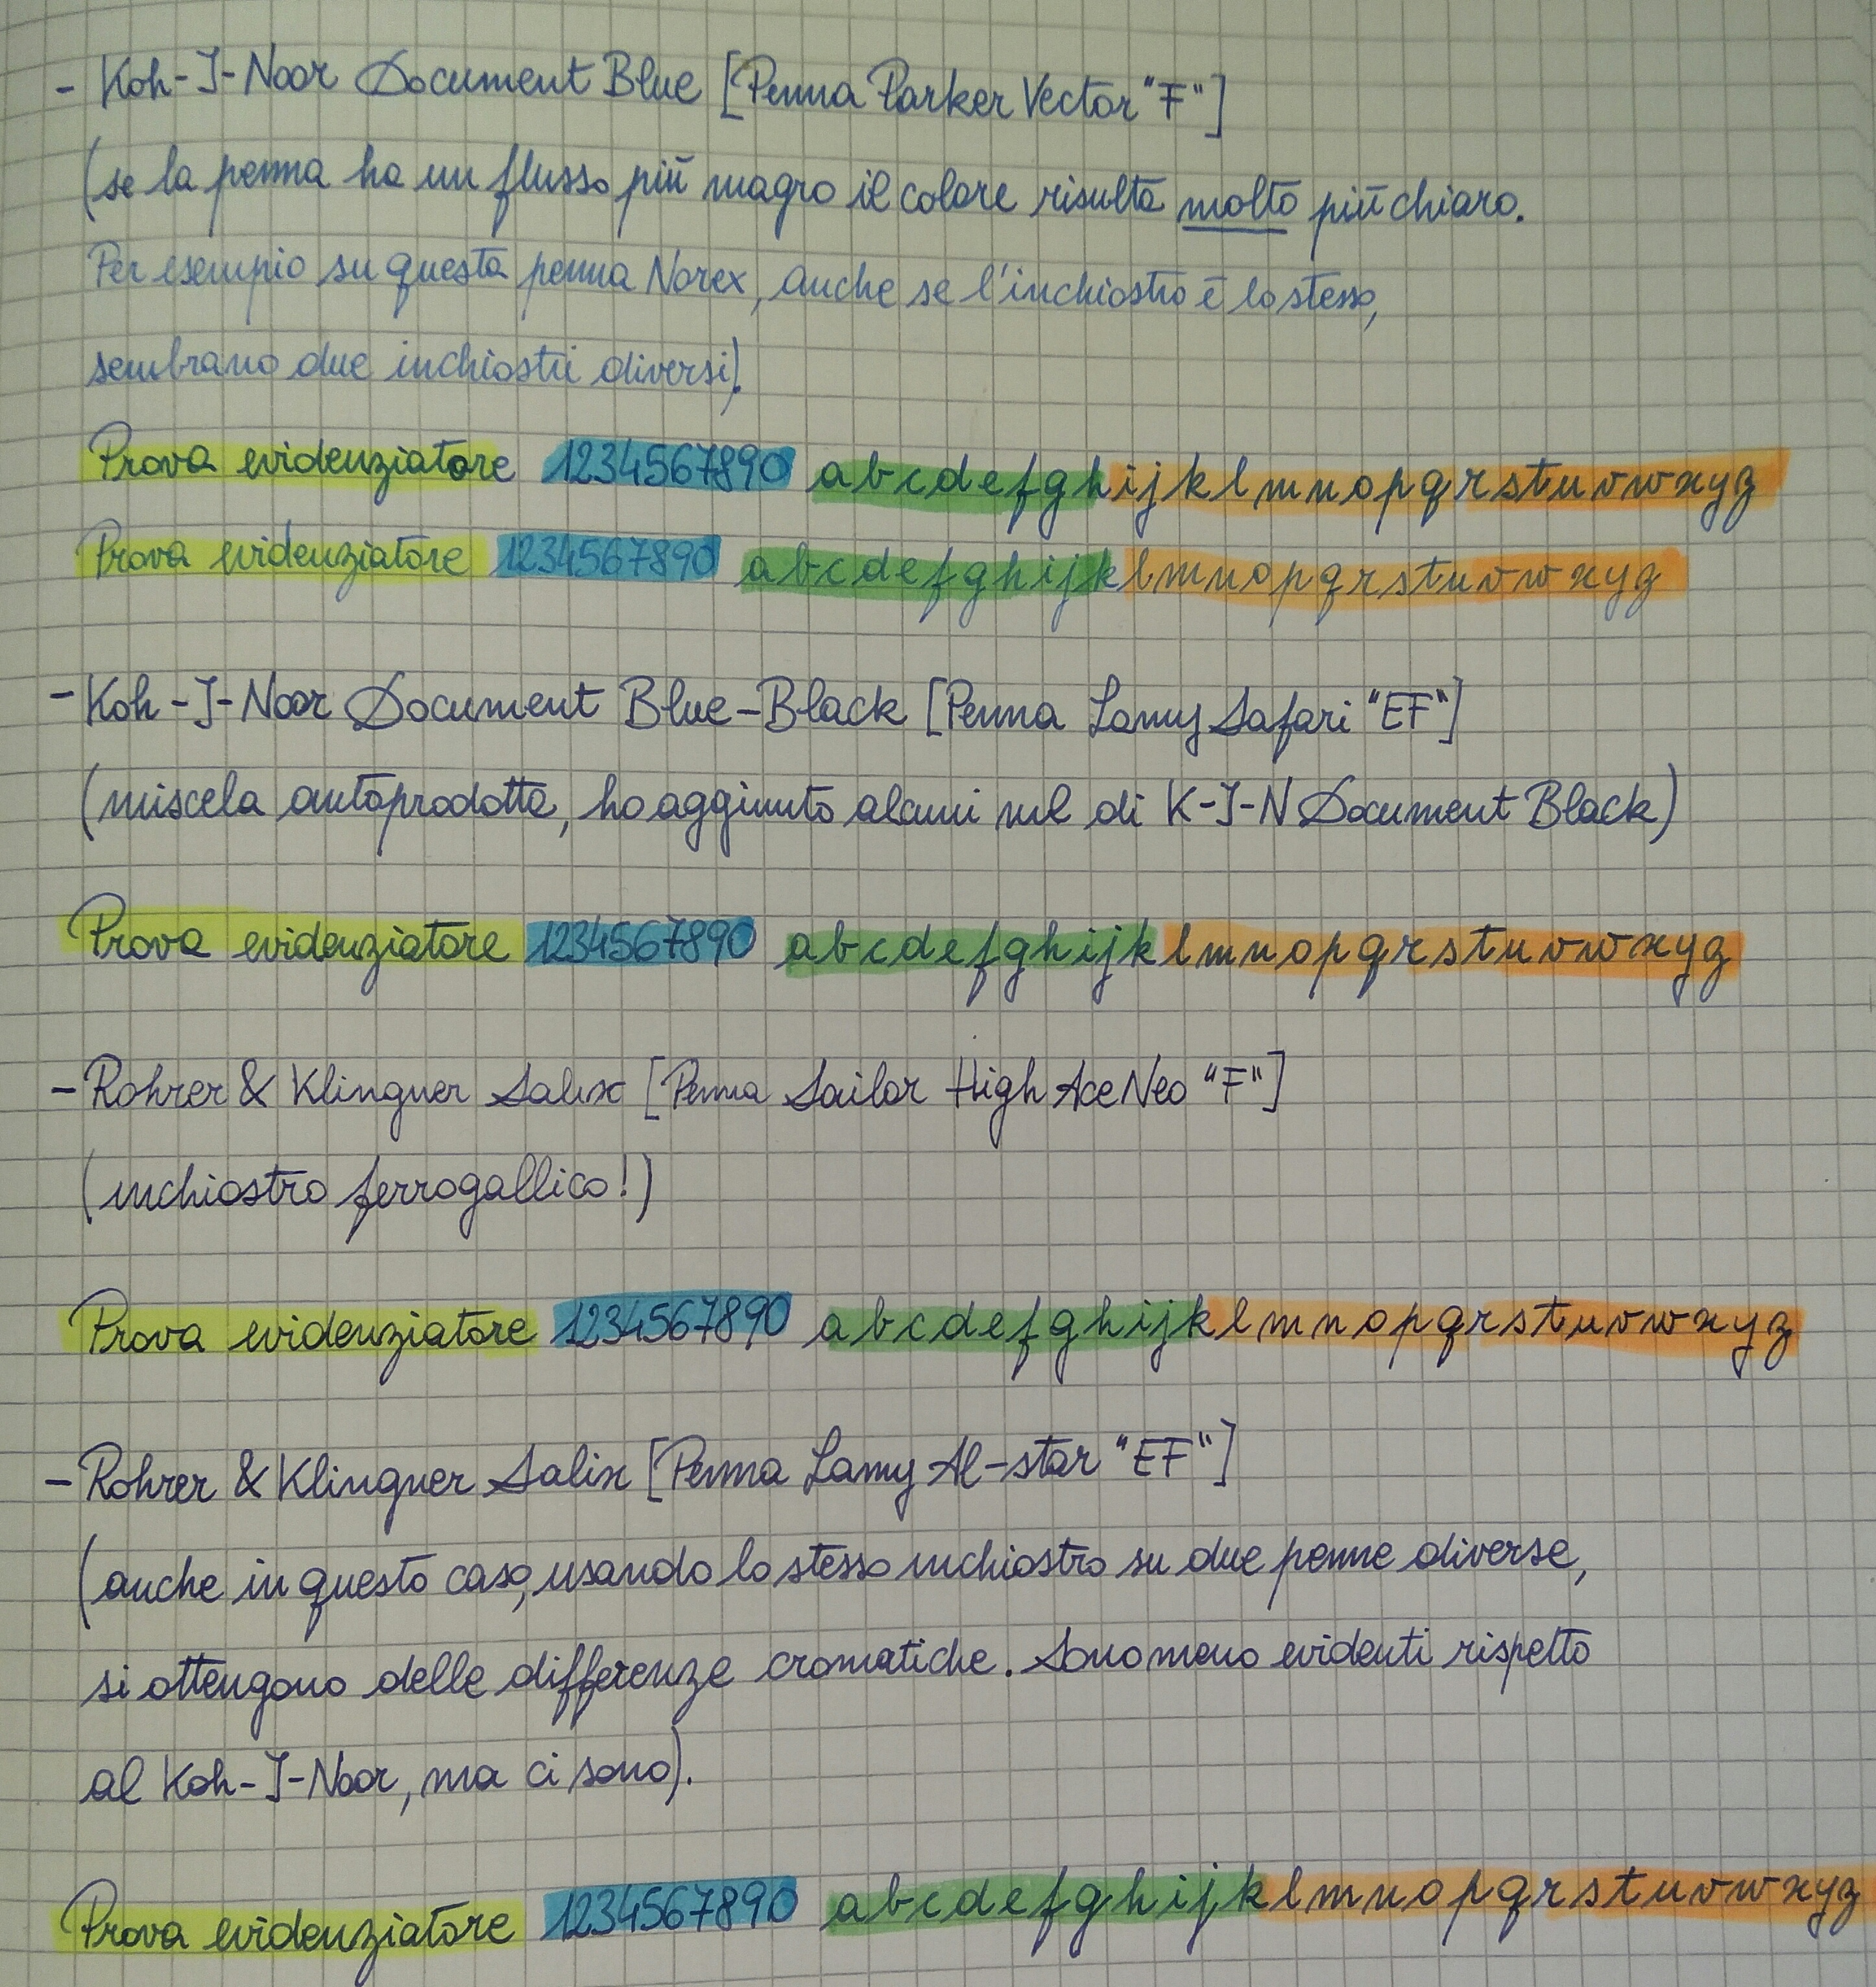 - Koh-I-Noor Document Blue [Penna Parker Vector "F"]
(se la penna ha un flusso più magro il colore risulta molto più chiaro.
Per esempio su questa penna Norex, anche se l'inchiostro è lo stesso,
sembrano due inchiostri diversi).
Prova evidenziatore 1234567890 abcdefghijklmnopqrstuvwxyz
Prova evidenziatore 1234567890 abcdefghijklmnopqrstuvwxyz
- Koh-I-Noor Document Blue-Black [Penna Lamy Safari "EF"]
(miscela autoprodotta, ho aggiunto alcuni ml di K-I-N Document Black)
Prova evidenziatore 1234567890 abcdefghijklmnopqrstuvwxyz
- Rohrer & Klingner Salix [Penna Sailor High Ace Neo "F"]
(inchiostro ferrogallico!)
Prova evidenziatore 1234567890 abcdefghijklmnopqrstuvwxyz
- Rohrer & Klingner Salix [Penna Lamy Al-star "EF"]
(anche in questo caso, usando lo stesso inchiostro su due penne diverse,
si ottengono delle differenze cromatiche. Sono meno evidenti rispetto
al Koh-I-Noor, ma ci sono).
Prova evidenziatore 1234567890 abcdefghijklmnopqrstuvwxyz